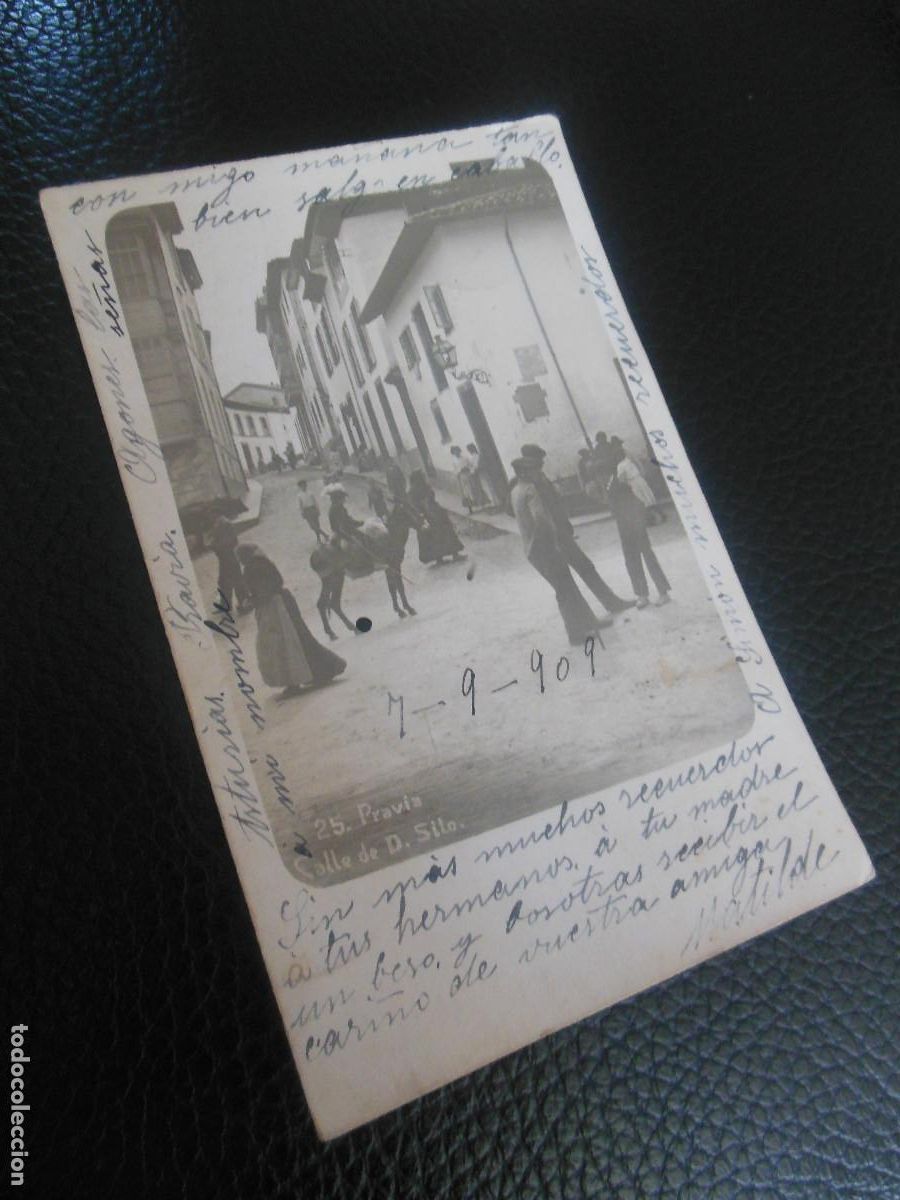 con migo mañana tan
bien salg- en caballo.
las señas
á mi nombre
Asturias. Pravia. Agones.
A Simón muchos recuerdos
7-9-909
25. Pravia
Calle de D. Silo.
Sin más muchos recuerdos
á tus hermanos, á tu madre
un beso, y vosotras recibir el
cariño de vuestra amiga
Matilde
todocoleccion